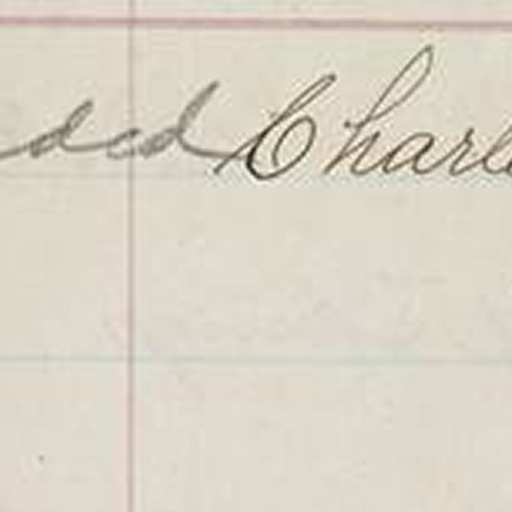 ded Charle